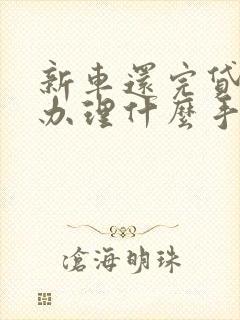 新車還完貸
办理什麼手
滄海明珠